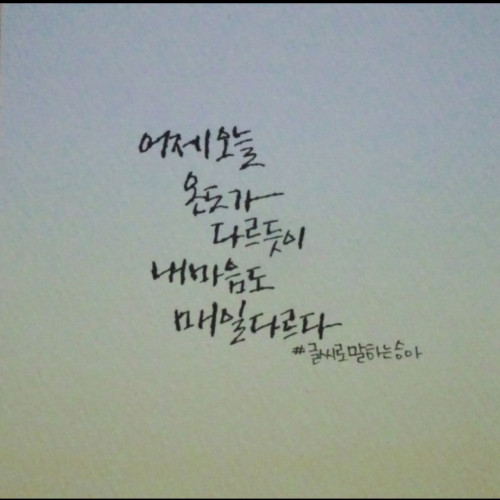 어제오늘
온도가
다르듯이
내마음도
매일다르다
#글씨로말하는승아